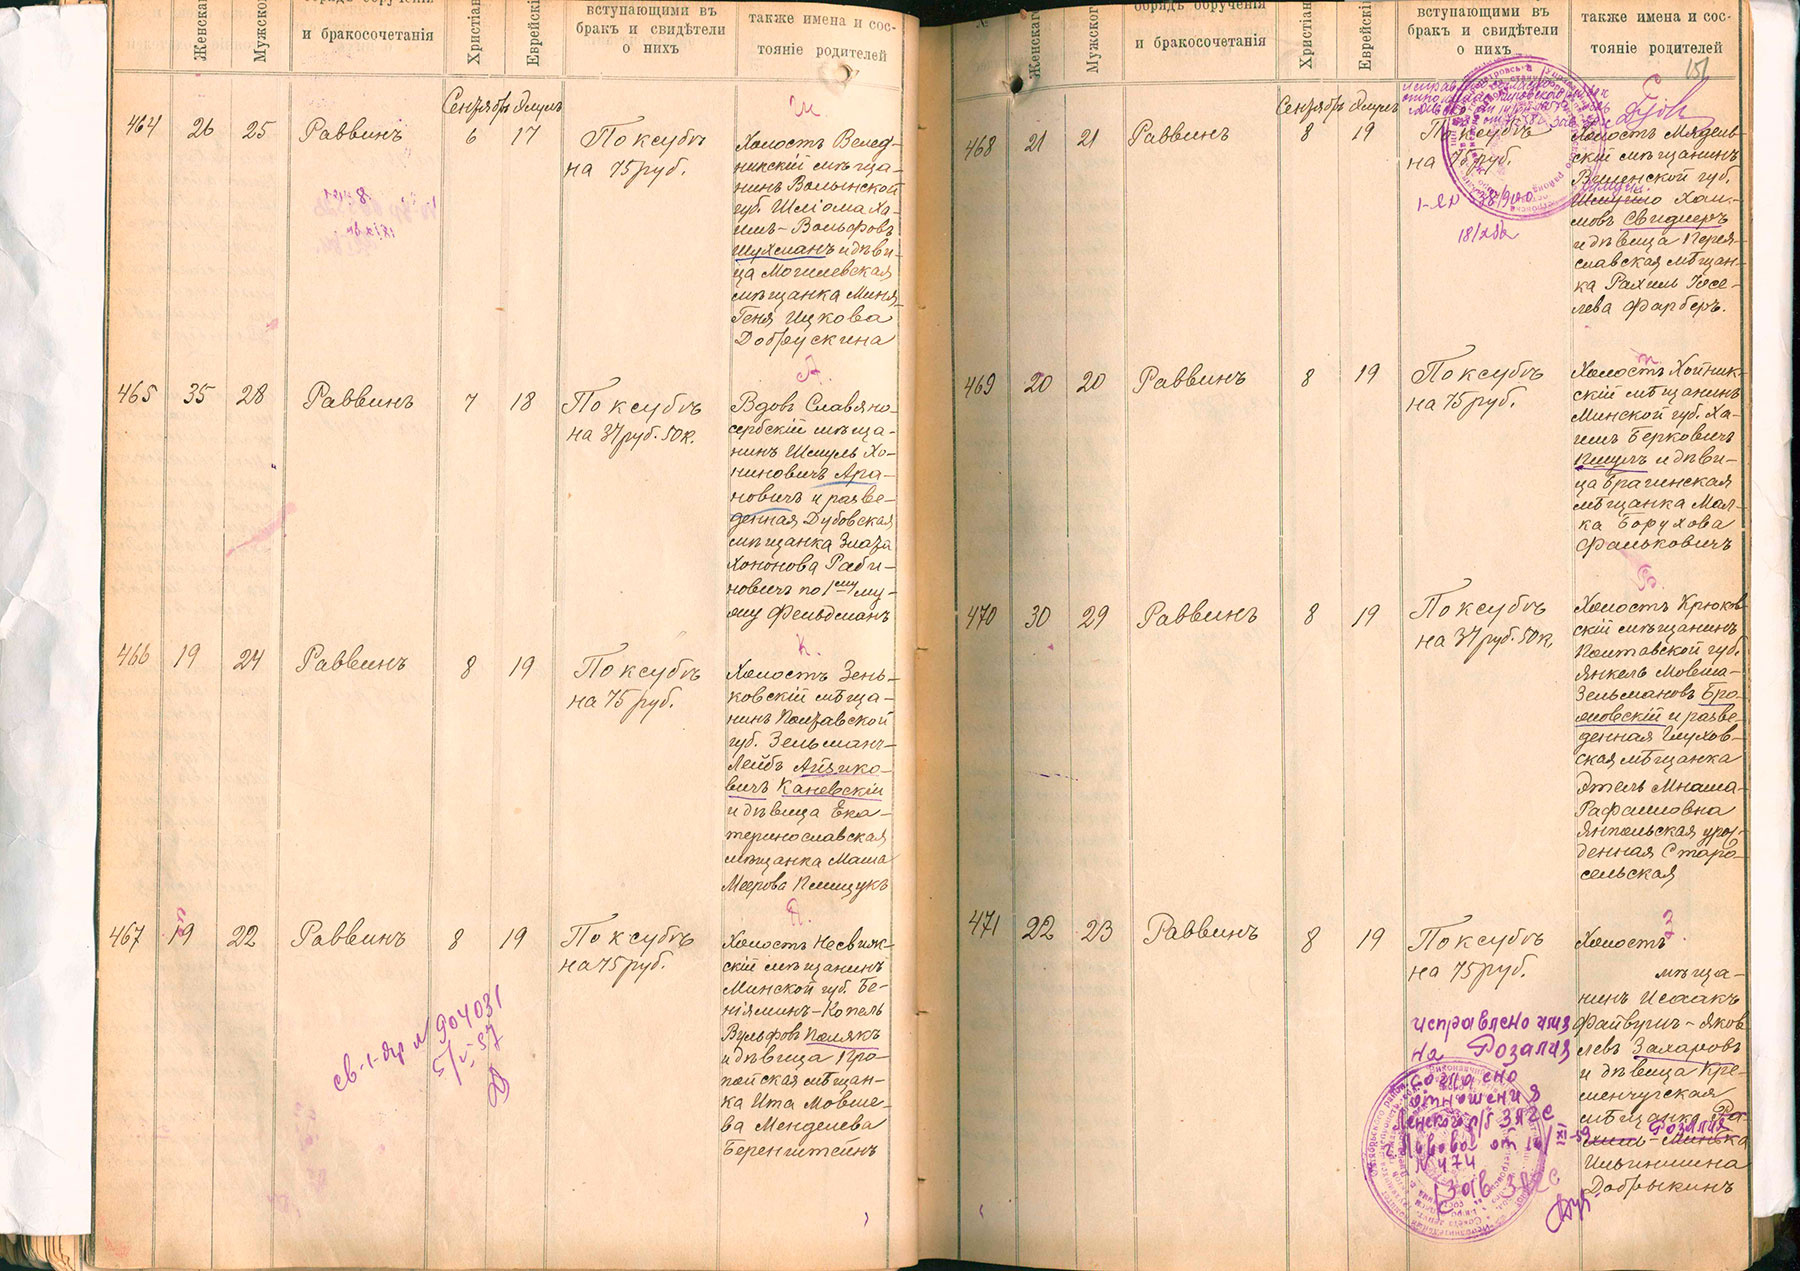 Женска
Мужско
обрядъ обрученія
и бракосочетанія
Христіан
Еврейскі
вступающими въ
бракъ и свидѣтели
о нихъ
также имена и сос-
тояніе родителей
Сентябрь Элулъ
464 26 25 Раввинъ 6 17
По ксубѣ
на 75 руб.
Ш
Холостъ Велед-
никскій мѣща-
нинъ Волынской
губ. Шліома Ха-
имъ-Вольфовъ
Шухманъ и дѣви-
ца Могилевская
мѣщанка Миня-
Геня Ицкова
Добрускина
465 35 28 Раввинъ 7 18
По ксубѣ
на 37 руб. 50 к.
А.
Вдовъ Славяно-
сербскій мѣща-
нинъ Шмуль Хо-
ниновичъ Ара-
новичъ и разве-
денная Дубовская
мѣщанка Злата
Хононова Раби-
новичъ по 1му му-
жу Фельдманъ
466 19 24 Раввинъ 8 19
По ксубѣ
на 75 руб.
К.
Холостъ Зень-
ковскій мѣща-
нинъ Полтавской
губ. Зельманъ-
Лейбъ Айзико-
вичъ Каневскій
и дѣвица Ека-
теринославская
мѣщанка Маша
Меерова Полищукъ
467 19 22 Раввинъ 8 19
По ксубѣ
на 75 руб.
П.
Холостъ Несвиж-
скій мѣщанинъ
Минской губ. Бе-
ніяминъ-Копель
Вульфовъ Полякъ
и дѣвица Про-
пойская мѣщан-
ка Ита Мовше-
ва Менделева
Беренштейнъ
св-1-яр № 904031
5/V-57
Женскаго
Мужского
обрядъ обрученія
и бракосочетанія
Христіан
Еврейскі
вступающими въ
бракъ и свидѣтели
о нихъ
также имена и сос-
тояніе родителей
151
Сентябрь Элулъ
468 21 21 Раввинъ 8 19
По ксубѣ
на 75 руб.
1-еп 538/900
С
Холостъ Мядель-
скій мѣщанинъ
Виленской губ.
Хаи-
мовъ Свидлеръ
и дѣвица Перея-
славская мѣщан-
ка Рахиль Іосе-
лева Фарберъ.
469 20 20 Раввинъ 8 19
По ксубѣ
на 75 руб.
П.
Холостъ Хойник-
скій мѣщанинъ
Минской губ. Ха-
имъ Берковичъ
и дѣви-
ца Брагинская
мѣщанка Мал-
ка Борухова
Фальковичъ
470 30 29 Раввинъ 8 19
По ксубѣ
на 37 руб. 50 к.
Б.
Холостъ Крюков-
скій мѣщанинъ
Полтавской губ.
Янкель Мовша-
Зельмановъ Бро-
и разве-
денная Глухов-
ская мѣщанка
Этель Мнаша-
Рафаиловна
Ямпольская урож-
денная Старо-
сельская
471 22 23 Раввинъ 8 19
По ксубѣ
на 75 руб.
З.
Холостъ
мѣща-
нинъ Исаакъ
Файвуши-Яков-
левъ Захаровъ
и дѣвица Кре-
менчугская
мѣщанка Ра-
хиль-Минька
Розалия
Ильинишна
Добрыкинъ
исправлено имя
на Розалия
согласно
отношения
Ленского р/б ЗАГС
г. Львова от 10/XII-59
№ 474
Зав ЗАГС